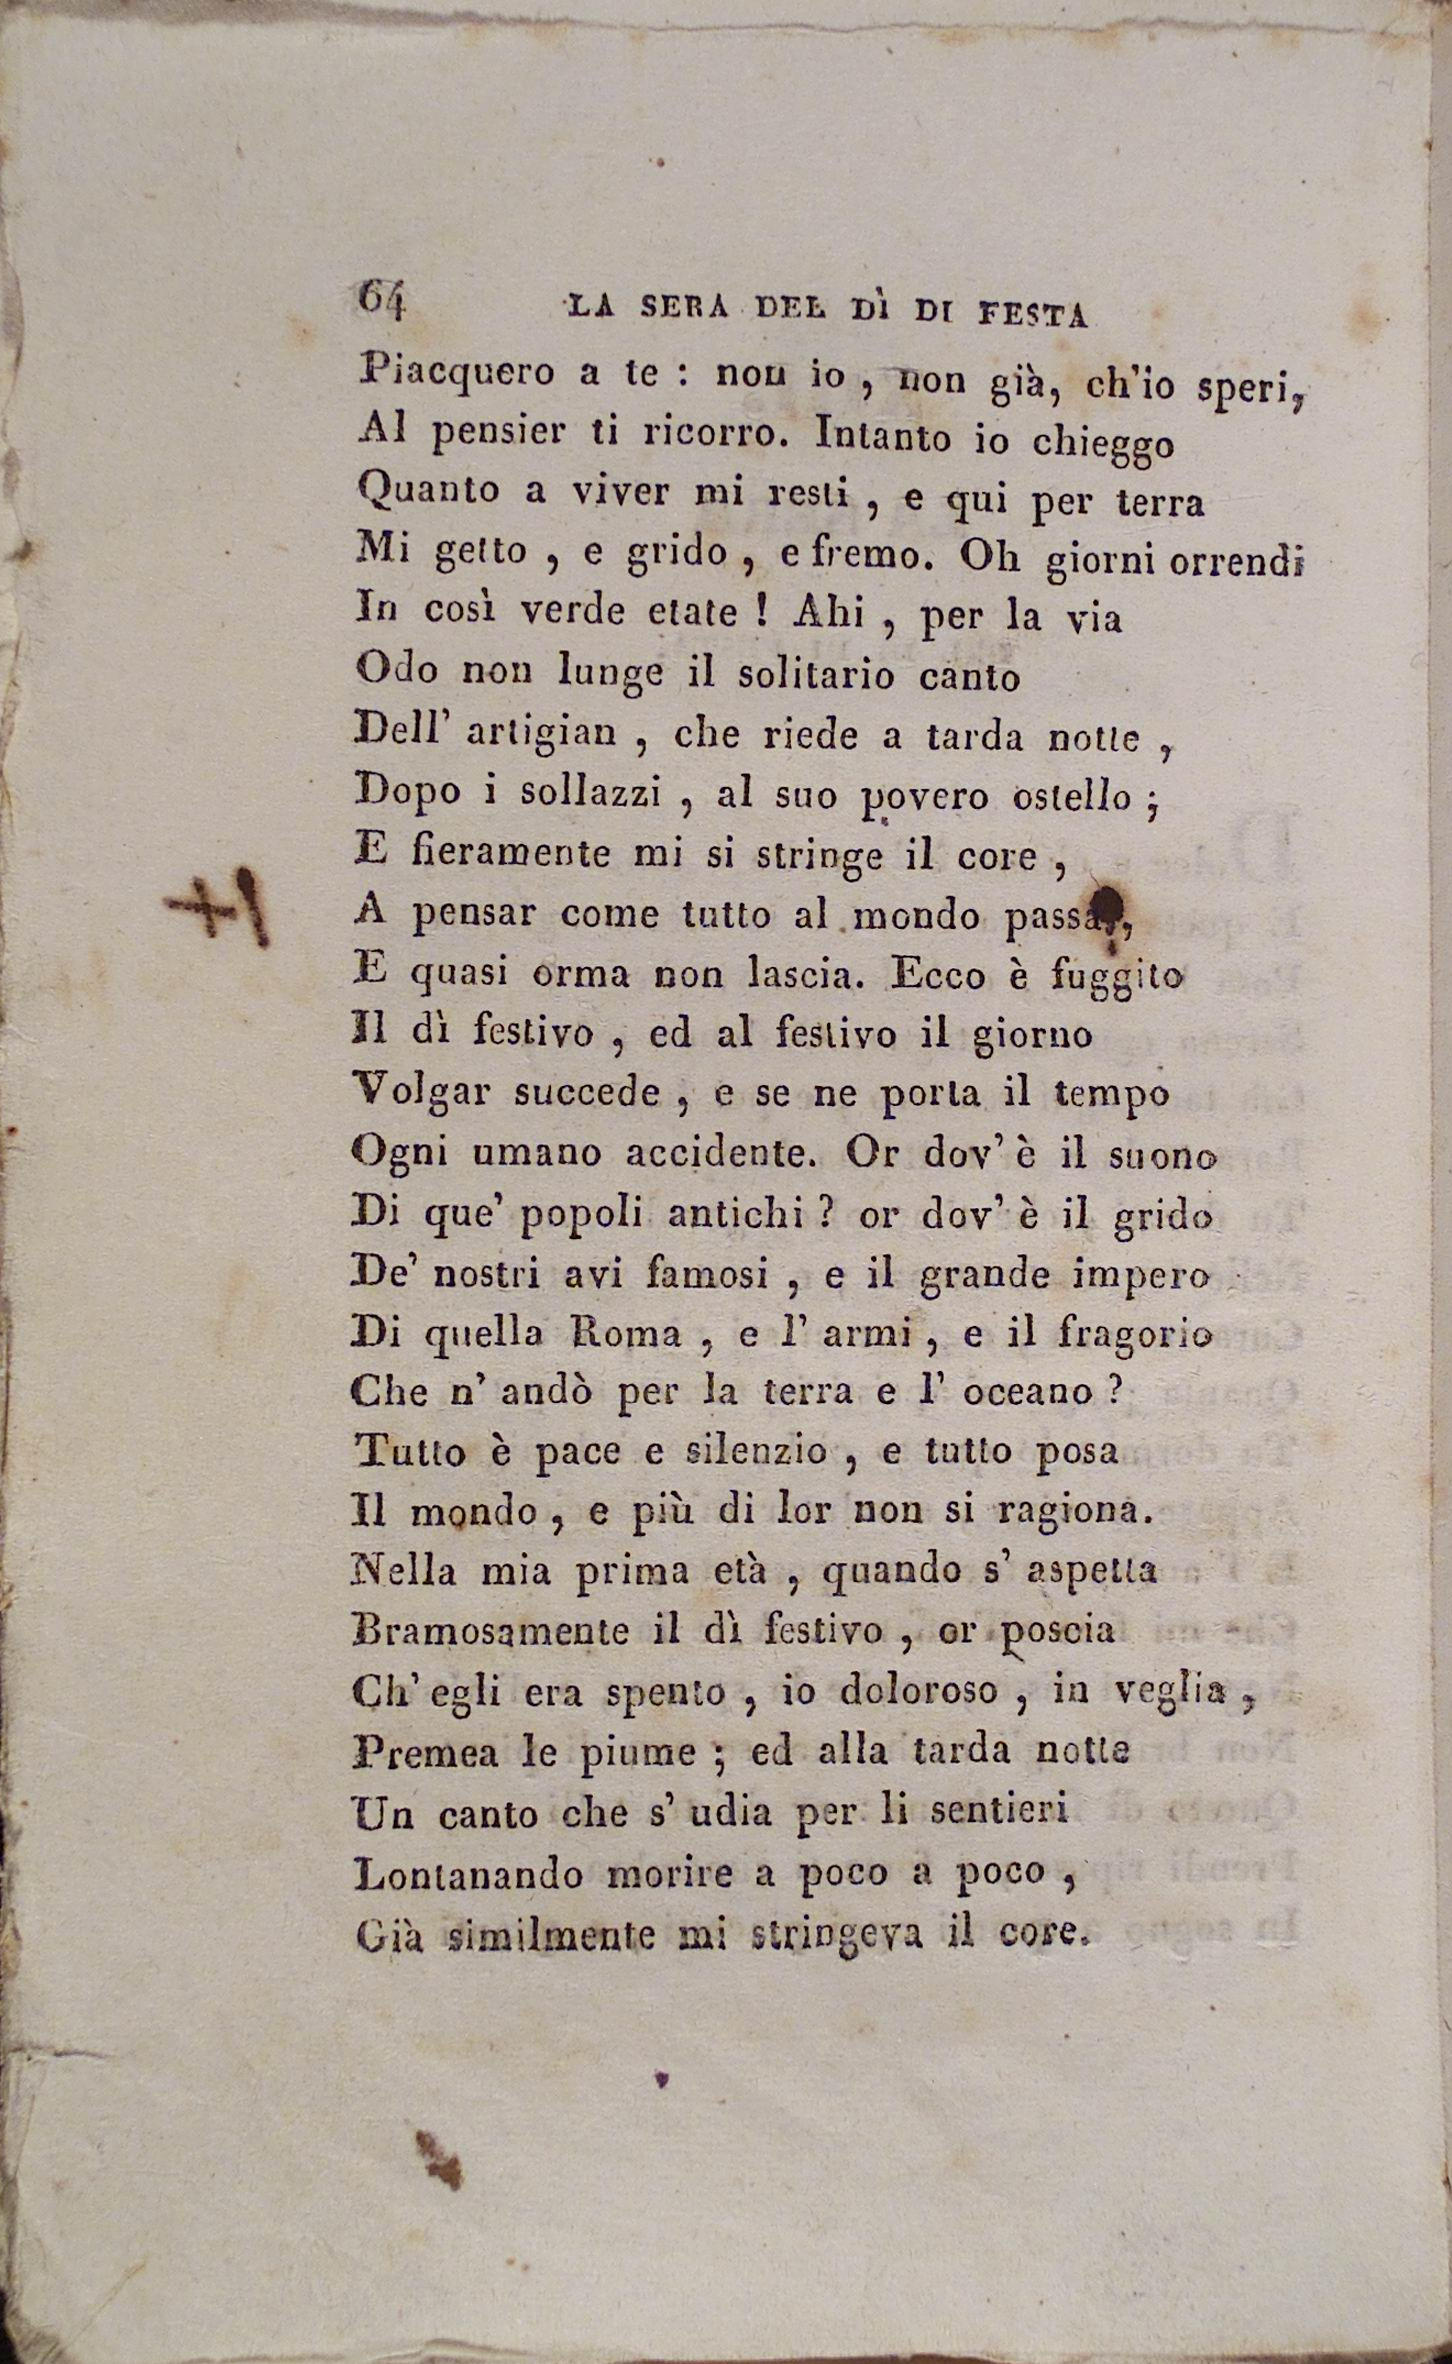 64 LA SERA DEL DÌ DI FESTA
Piacquero a te : non io , non già, ch'io speri,
Al pensier ti ricorro. Intanto io chieggo
Quanto a viver mi resti , e qui per terra
Mi getto , e grido , e fremo. Oh giorni orrendi
In così verde etate ! Ahi , per la via
Odo non lunge il solitario canto
Dell' artigian , che riede a tarda notte ,
Dopo i sollazzi , al suo povero ostello ;
E fieramente mi si stringe il core ,
A pensar come tutto al mondo passa ,
E quasi orma non lascia. Ecco è fuggito
Il dì festivo , ed al festivo il giorno
Volgar succede , e se ne porta il tempo
Ogni umano accidente. Or dov' è il suono
Di que' popoli antichi ? or dov' è il grido
De' nostri avi famosi , e il grande impero
Di quella Roma , e l' armi , e il fragorio
Che n' andò per la terra e l' oceano ?
Tutto è pace e silenzio , e tutto posa
Il mondo , e più di lor non si ragiona.
Nella mia prima età , quando s' aspetta
Bramosamente il dì festivo , or poscia
Ch' egli era spento , io doloroso , in veglia ,
Premea le piume ; ed alla tarda notte
Un canto che s' udia per li sentieri
Lontanando morire a poco a poco ,
Già similmente mi stringeva il core.